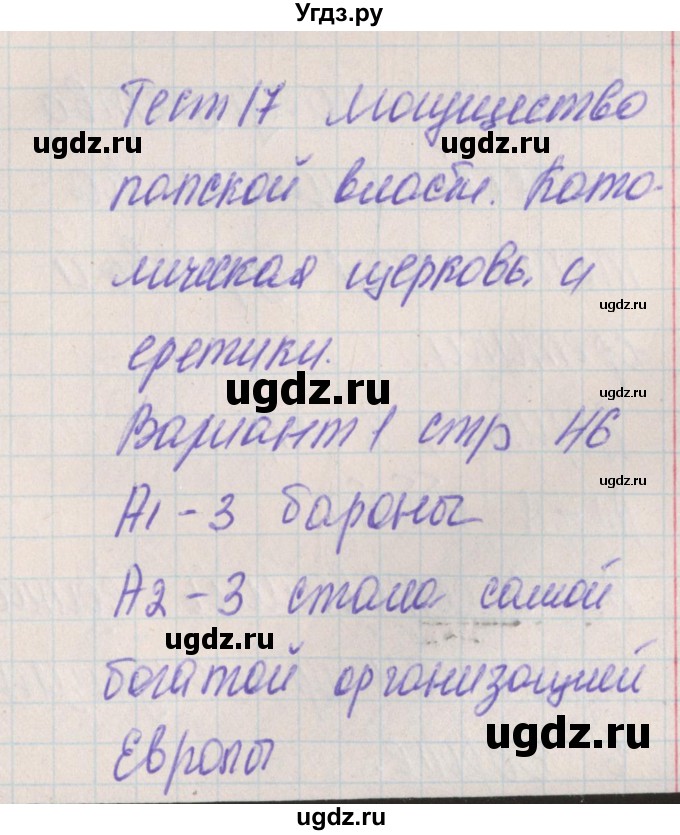 Угдз.ру
Тест 17 Могущество
папской власти. Като-
лическая церковь и
еретики.
Вариант 1 стр 46
А1 - 3 бароны
А2 - 3 стала самой
богатой организацией
Европы
ugdz.ru
ugdz.ru
ugdz.ru
ugdz.ru
ugdz.ru
ugdz.ru
ugdz.ru
ugdz.ru
ugdz.ru